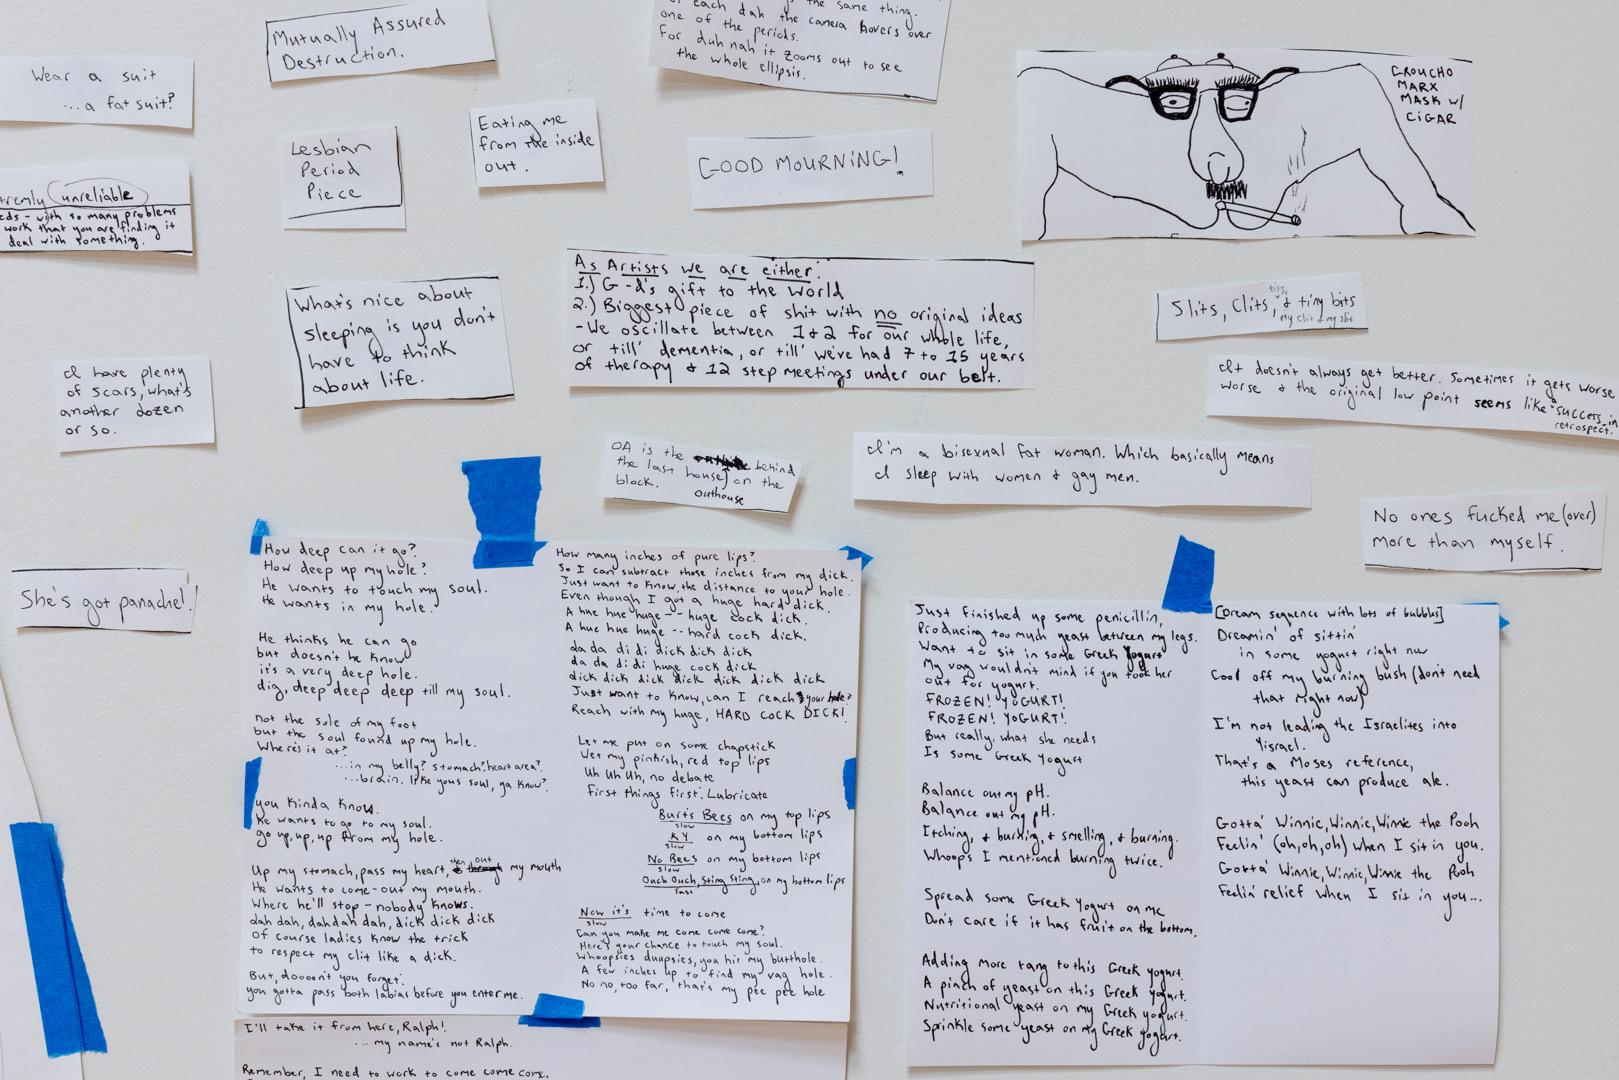 Wear a suit
...a fat suit?
Mutually Assured
Destruction.
of each dah the camera hovers over
one of the periods.
For duh nah it zooms out to see
the whole ellipsis.
GROUCHO
MARX
MASK W/
CIGAR
Lesbian
Period
Piece
Eating me
from the inside
out.
GOOD MOURNING!
unreliable
eds - with so many problems
work that you are finding it
deal with something.
What's nice about
sleeping is you don't
have to think
about life.
As Artists we are either:
1.) G-d's gift to the world
2.) Biggest piece of shit with no original ideas
-We oscillate between 1 & 2 for our whole life,
or till' dementia, or till' we've had 7 to 15 years
of therapy & 12 step meetings under our belt.
tits,
Slits, Clits, & tiny bits
my clit & my slit
I have plenty
of scars, what's
another dozen
or so.
It doesn't always get better. Sometimes it gets worse
worse & the original low point seems like a success in
retrospect.
OA is the behind
the last house on the
block. outhouse
I'm a bisexual fat woman. Which basically means
I sleep with women & gay men.
No ones fucked me (over)
more than myself.
She's got panache!
How deep can it go?
How deep up my hole?
He wants to touch my soul.
He wants in my hole.
He thinks he can go
but doesn't he know
it's a very deep hole.
dig, deep deep deep till my soul.
not the sole of my foot
but the soul found up my hole.
Where's it at?
...in my belly? stomach? heart area?
...brain. like yous soul, ya know?
you kinda know.
he wants to go to my soul.
go up, up, up from my hole.
Up my stomach, pass my heart, then out my mouth
He wants to come-out my mouth.
Where he'll stop - nobody knows.
dah dah, dahdah dah, dick dick dick
Of course ladies know the trick
to respect my clit like a dick.
But, doooon't you forget:
you gotta pass both labias before you enter me.
How many inches of pure lips?
So I can subtract those inches from my dick.
Just want to know, the distance to your hole.
Even though I got a huge hard dick.
A hue hue huge -- huge cock dick.
A hue hue huge -- hard cock dick.
da da di di dick dick dick
da da di di huge cock dick
dick dick dick dick dick dick dick
Just want to know, can I reach your hole?
Reach with my huge, HARD COCK DICK!
Let me put on some chapstick
Wet my pinkish, red top lips
Uh Uh Uh, no debate
First things first. Lubricate
Burt's Bees on my top lips
slow
KY on my bottom lips
slow
No Bees on my bottom lips
slow
Ouch Ouch, Sting Sting, on my bottom lips
fast
Now it's time to come
slow
Can you make me come come come?
Here's your chance to touch my soul.
Whoopsies duupsies, you hit my butthole.
A few inches up to find my vag hole.
No no, too far, that's my pee pee hole
I'll take it from here, Ralph!
... my name's not Ralph.
Remember, I need to work to come come come,
Just finished up some penicillin,
Producing too much yeast between my legs.
Want to sit in some Greek Yogurt
My vag wouldn't mind if you took her
out for yogurt.
FROZEN! YOGURT!
FROZEN! YOGURT!
But really, what she needs
Is some Greek Yogurt
Balance out my pH.
Balance out my pH.
Itching, & burning, & smelling, & burning.
Whoops I mentioned burning twice.
Spread some Greek Yogurt on me
Don't care if it has fruit on the bottom.
Adding more tang to this Greek yogurt.
A pinch of yeast on this Greek yogurt.
Nutritional yeast on my Greek yogurt.
Sprinkle some yeast on my Greek yogurt.
[Dream sequence with lots of bubbles]
Dreamin' of sittin'
in some yogurt right now
Cool off my burning bush (don't need
that right now)
I'm not leading the Israelites into
Yisrael.
That's a Moses reference,
this yeast can produce ale.
Gotta' Winnie, Winnie, Winnie the Pooh
Feelin' (oh, oh, oh) when I sit in you.
Gotta' Winnie, Winnie, Winnie the Pooh
Feelin' relief when I sit in you...